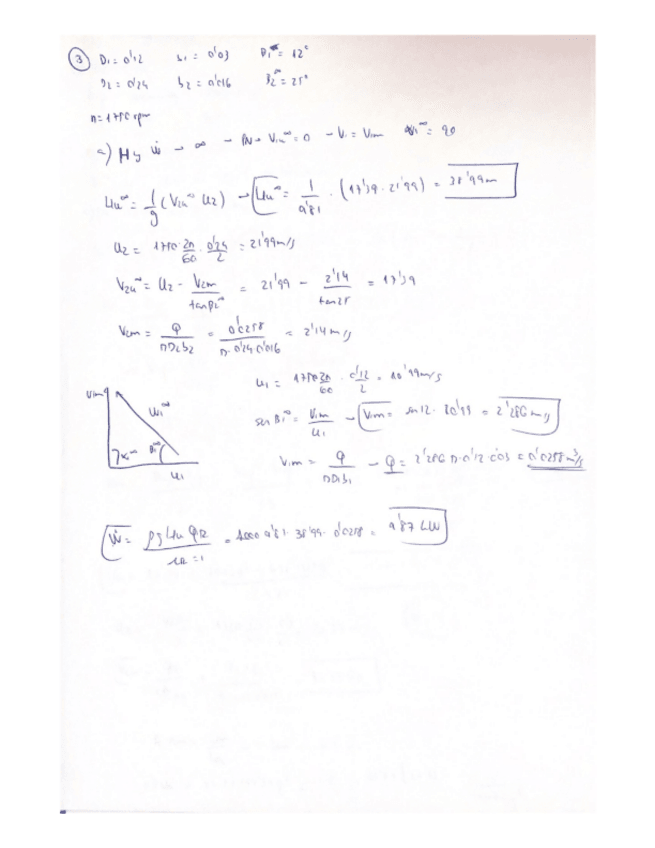 ③ D₁ = 0'12 b₁ = 0'03 β₁^∞ = 12°
D₂ = 0'24 b₂ = 0'016 β₂^∞ = 25°
n = 1750 rpm
H y Ẇ → ∞ → V₁u^∞ = 0 → V₁ = V₁m α₁^∞ = 90
Hu^∞ = 1/g (V₂u^∞ U₂) → Hu^∞ = 1/9'81 · (17'39 · 21'99) = 38'99 m
U₂ = 1750 · 2π/60 · 0'24/2 = 21'99 m/s
V₂u^∞ = U₂ - V₂m/tan β₂^∞ = 21'99 - 2'14/tan 25 = 17'39
V₂m = Q/πD₂b₂ = 0'0258/π · 0'24 · 0'016 = 2'14 m/s
U₁ = 1750 2π/60 · 0'12/2 = 10'99 m/s
V₁m
W₁^∞
sen β₁^∞ = V₁m/U₁ → V₁m = sen 12 · 10'99 = 2'286 m/s
α₁^∞ β₁^∞
U₁
V₁m = Q/πD₁b₁ → Q = 2'286 π · 0'12 · 0'03 = 0'0258 m³/s
Ẇ = ρ g Hu QR = 1000 · 9'81 · 38'99 · 0'0258 = 9'87 kW
= 1